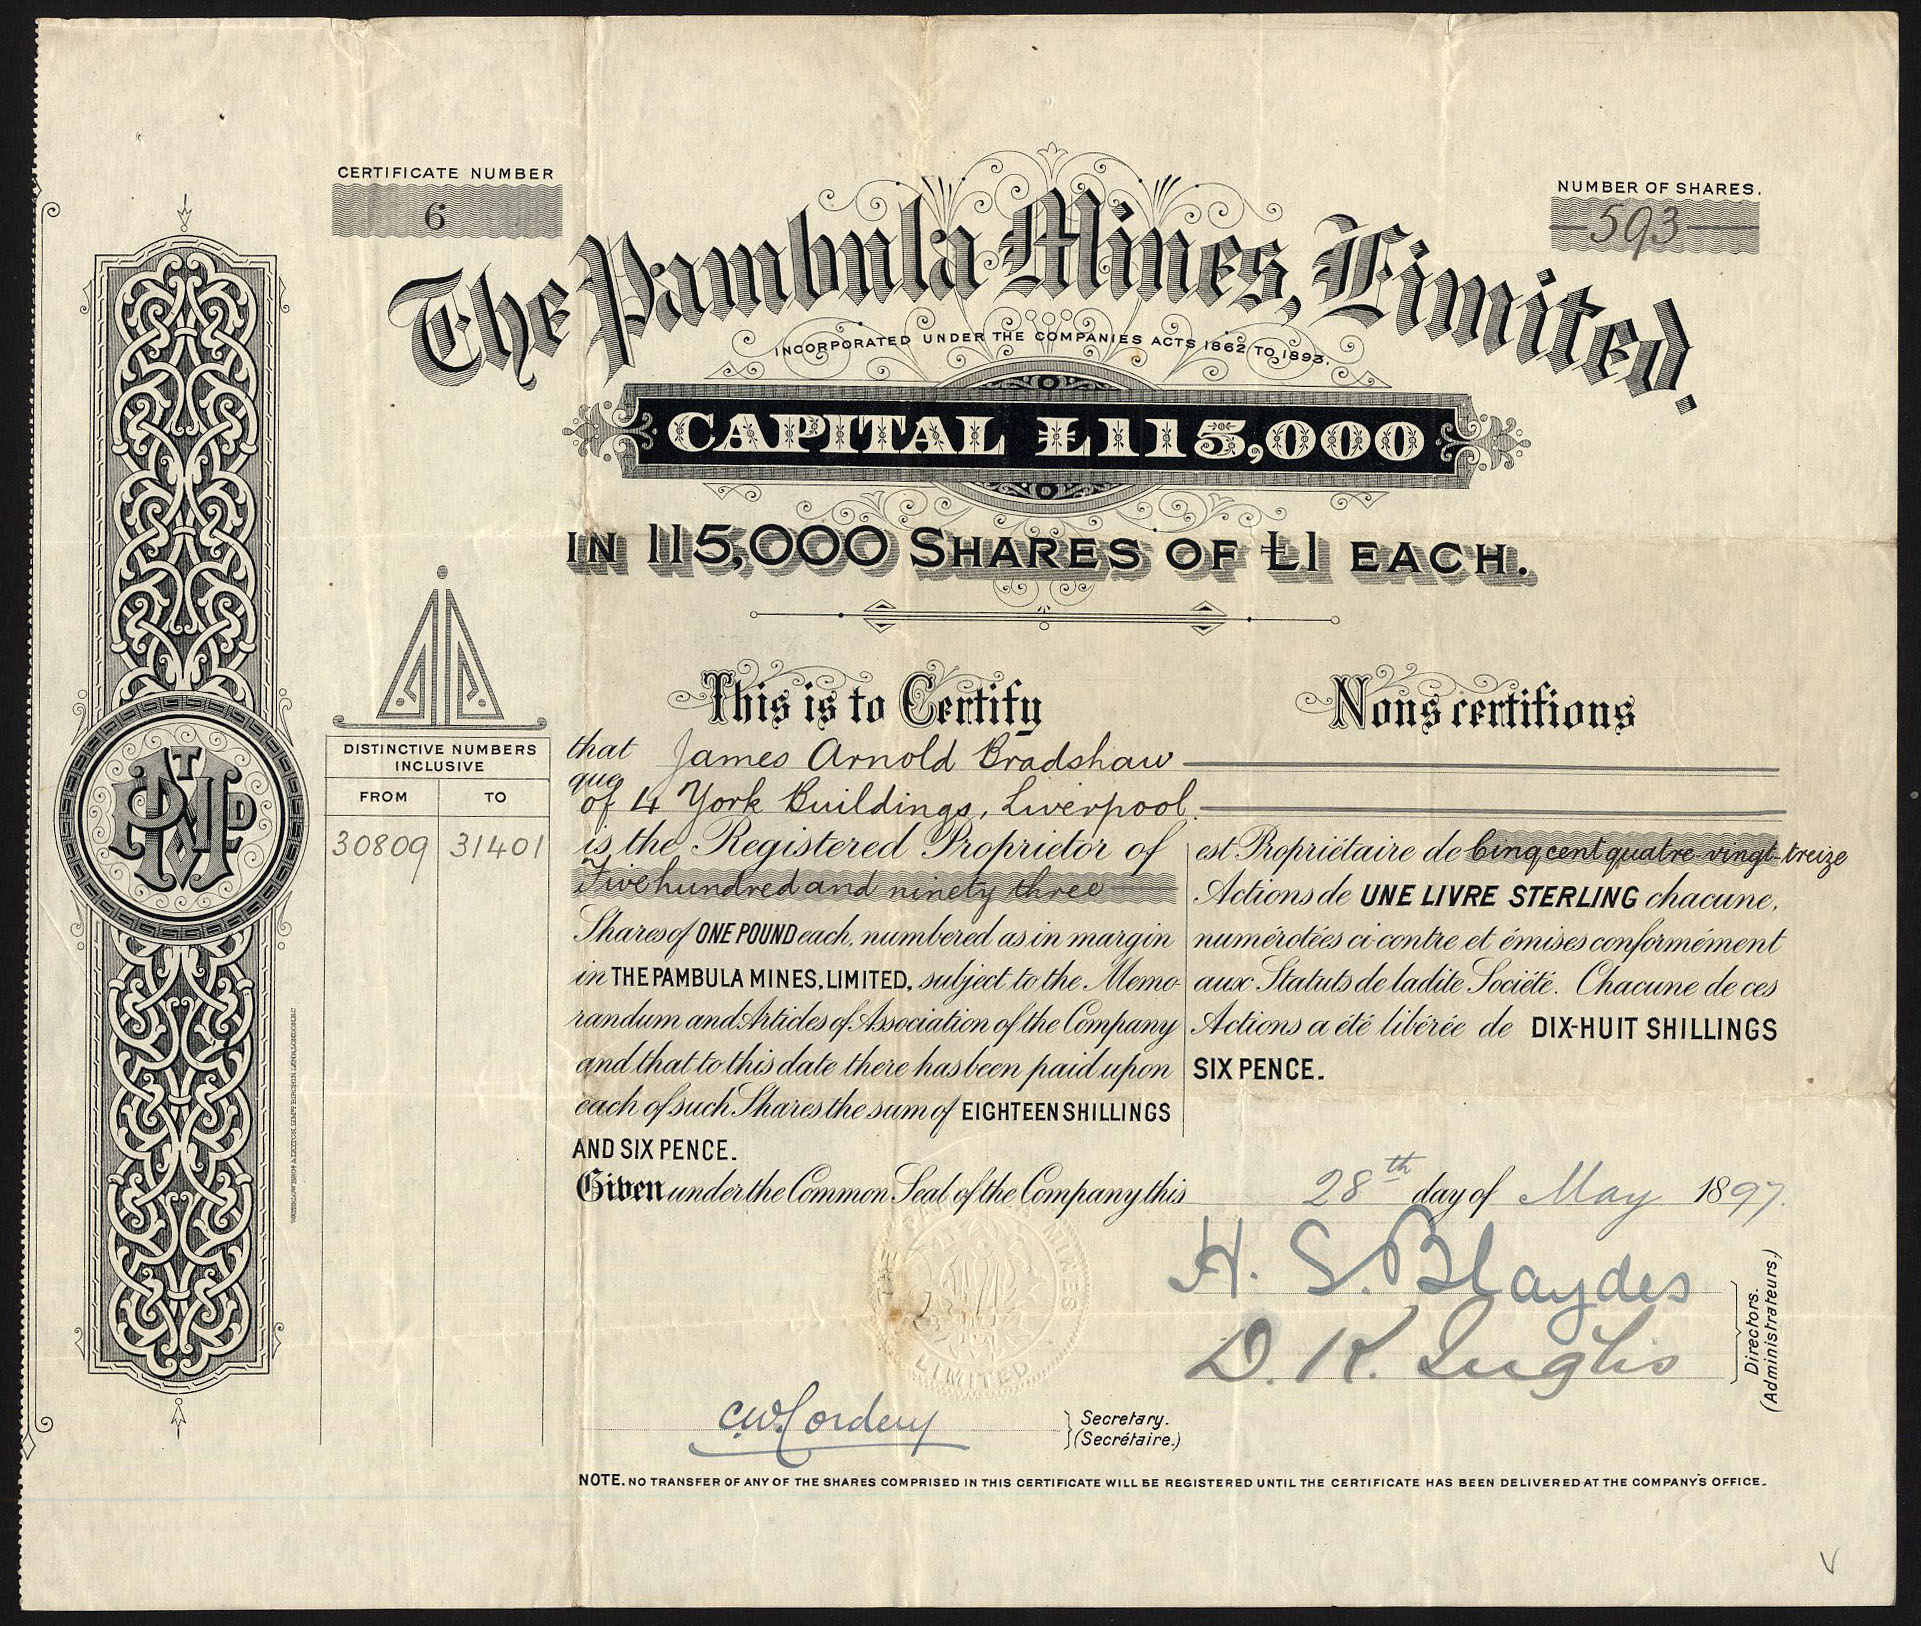 CERTIFICATE NUMBER
6
NUMBER OF SHARES.
593
The Pambula Mines, Limited.
INCORPORATED UNDER THE COMPANIES ACTS 1862 TO 1893.
CAPITAL £115,000
IN 115,000 SHARES OF £1 EACH.
DISTINCTIVE NUMBERS
INCLUSIVE
FROM TO
30809 31401
This is to Certify
that James Arnold Bradshaw
que
of 4 York Buildings, Liverpool.
is the Registered Proprietor of
Five hundred and ninety three
Shares of ONE POUND each, numbered as in margin
in THE PAMBULA MINES, LIMITED, subject to the Memo-
randum and Articles of Association of the Company
and that to this date there has been paid upon
each of such Shares the sum of EIGHTEEN SHILLINGS
AND SIX PENCE.
Nous certifions
est Propriétaire de Cinq cent quatre-vingt-treize
Actions de UNE LIVRE STERLING chacune,
numérotées ci contre et émises conformément
aux Statuts de ladite Société. Chacune de ces
Actions a été libérée de DIX-HUIT SHILLINGS
SIX PENCE.
Given under the Common Seal of the Company this 28th day of May 1897.
H. S. Blaydes
D. K. Inglis
Directors.
(Administrateurs.)
MINES
LIMITED
C.W. Cordery
Secretary.
(Secrétaire.)
NOTE. NO TRANSFER OF ANY OF THE SHARES COMPRISED IN THIS CERTIFICATE WILL BE REGISTERED UNTIL THE CERTIFICATE HAS BEEN DELIVERED AT THE COMPANY'S OFFICE.